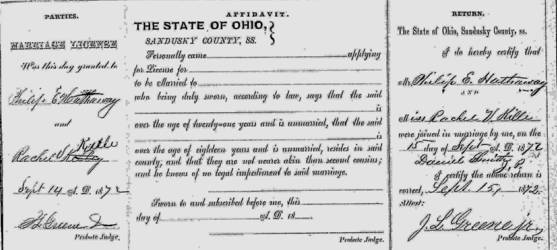 PARTIES.
MARRIAGE LICENSE
Was this day granted to
Philip E. Hathaway
and
Rachel
Sept 14 A. D. 1872
Probate Judge.
AFFIDAVIT.
THE STATE OF OHIO,
SANDUSKY COUNTY, SS.
Personally came applying
for License for
to be Married to
who being duly sworn, according to law, says that the said
is
over the age of twenty-one years and is unmarried, that the said
is
over the age of eighteen years and is unmarried, resides in said
county, and that they are not nearer akin than second cousins;
and he knows of no legal impediment to said marriage.
Sworn to and subscribed before me, this
day of A. D. 18
Probate Judge.
RETURN.
The State of Ohio, Sandusky County, ss.
I do hereby certify that
Mr Philip E. Hathaway
AND
Miss Rachel
were joined in marriage by me, on the
15 day of Sept A. D. 1872
Daniel Smith J. P.
I certify the above return is
correct, Sept. 15, 1872.
Attest:
J. L. Greene
Probate Judge.